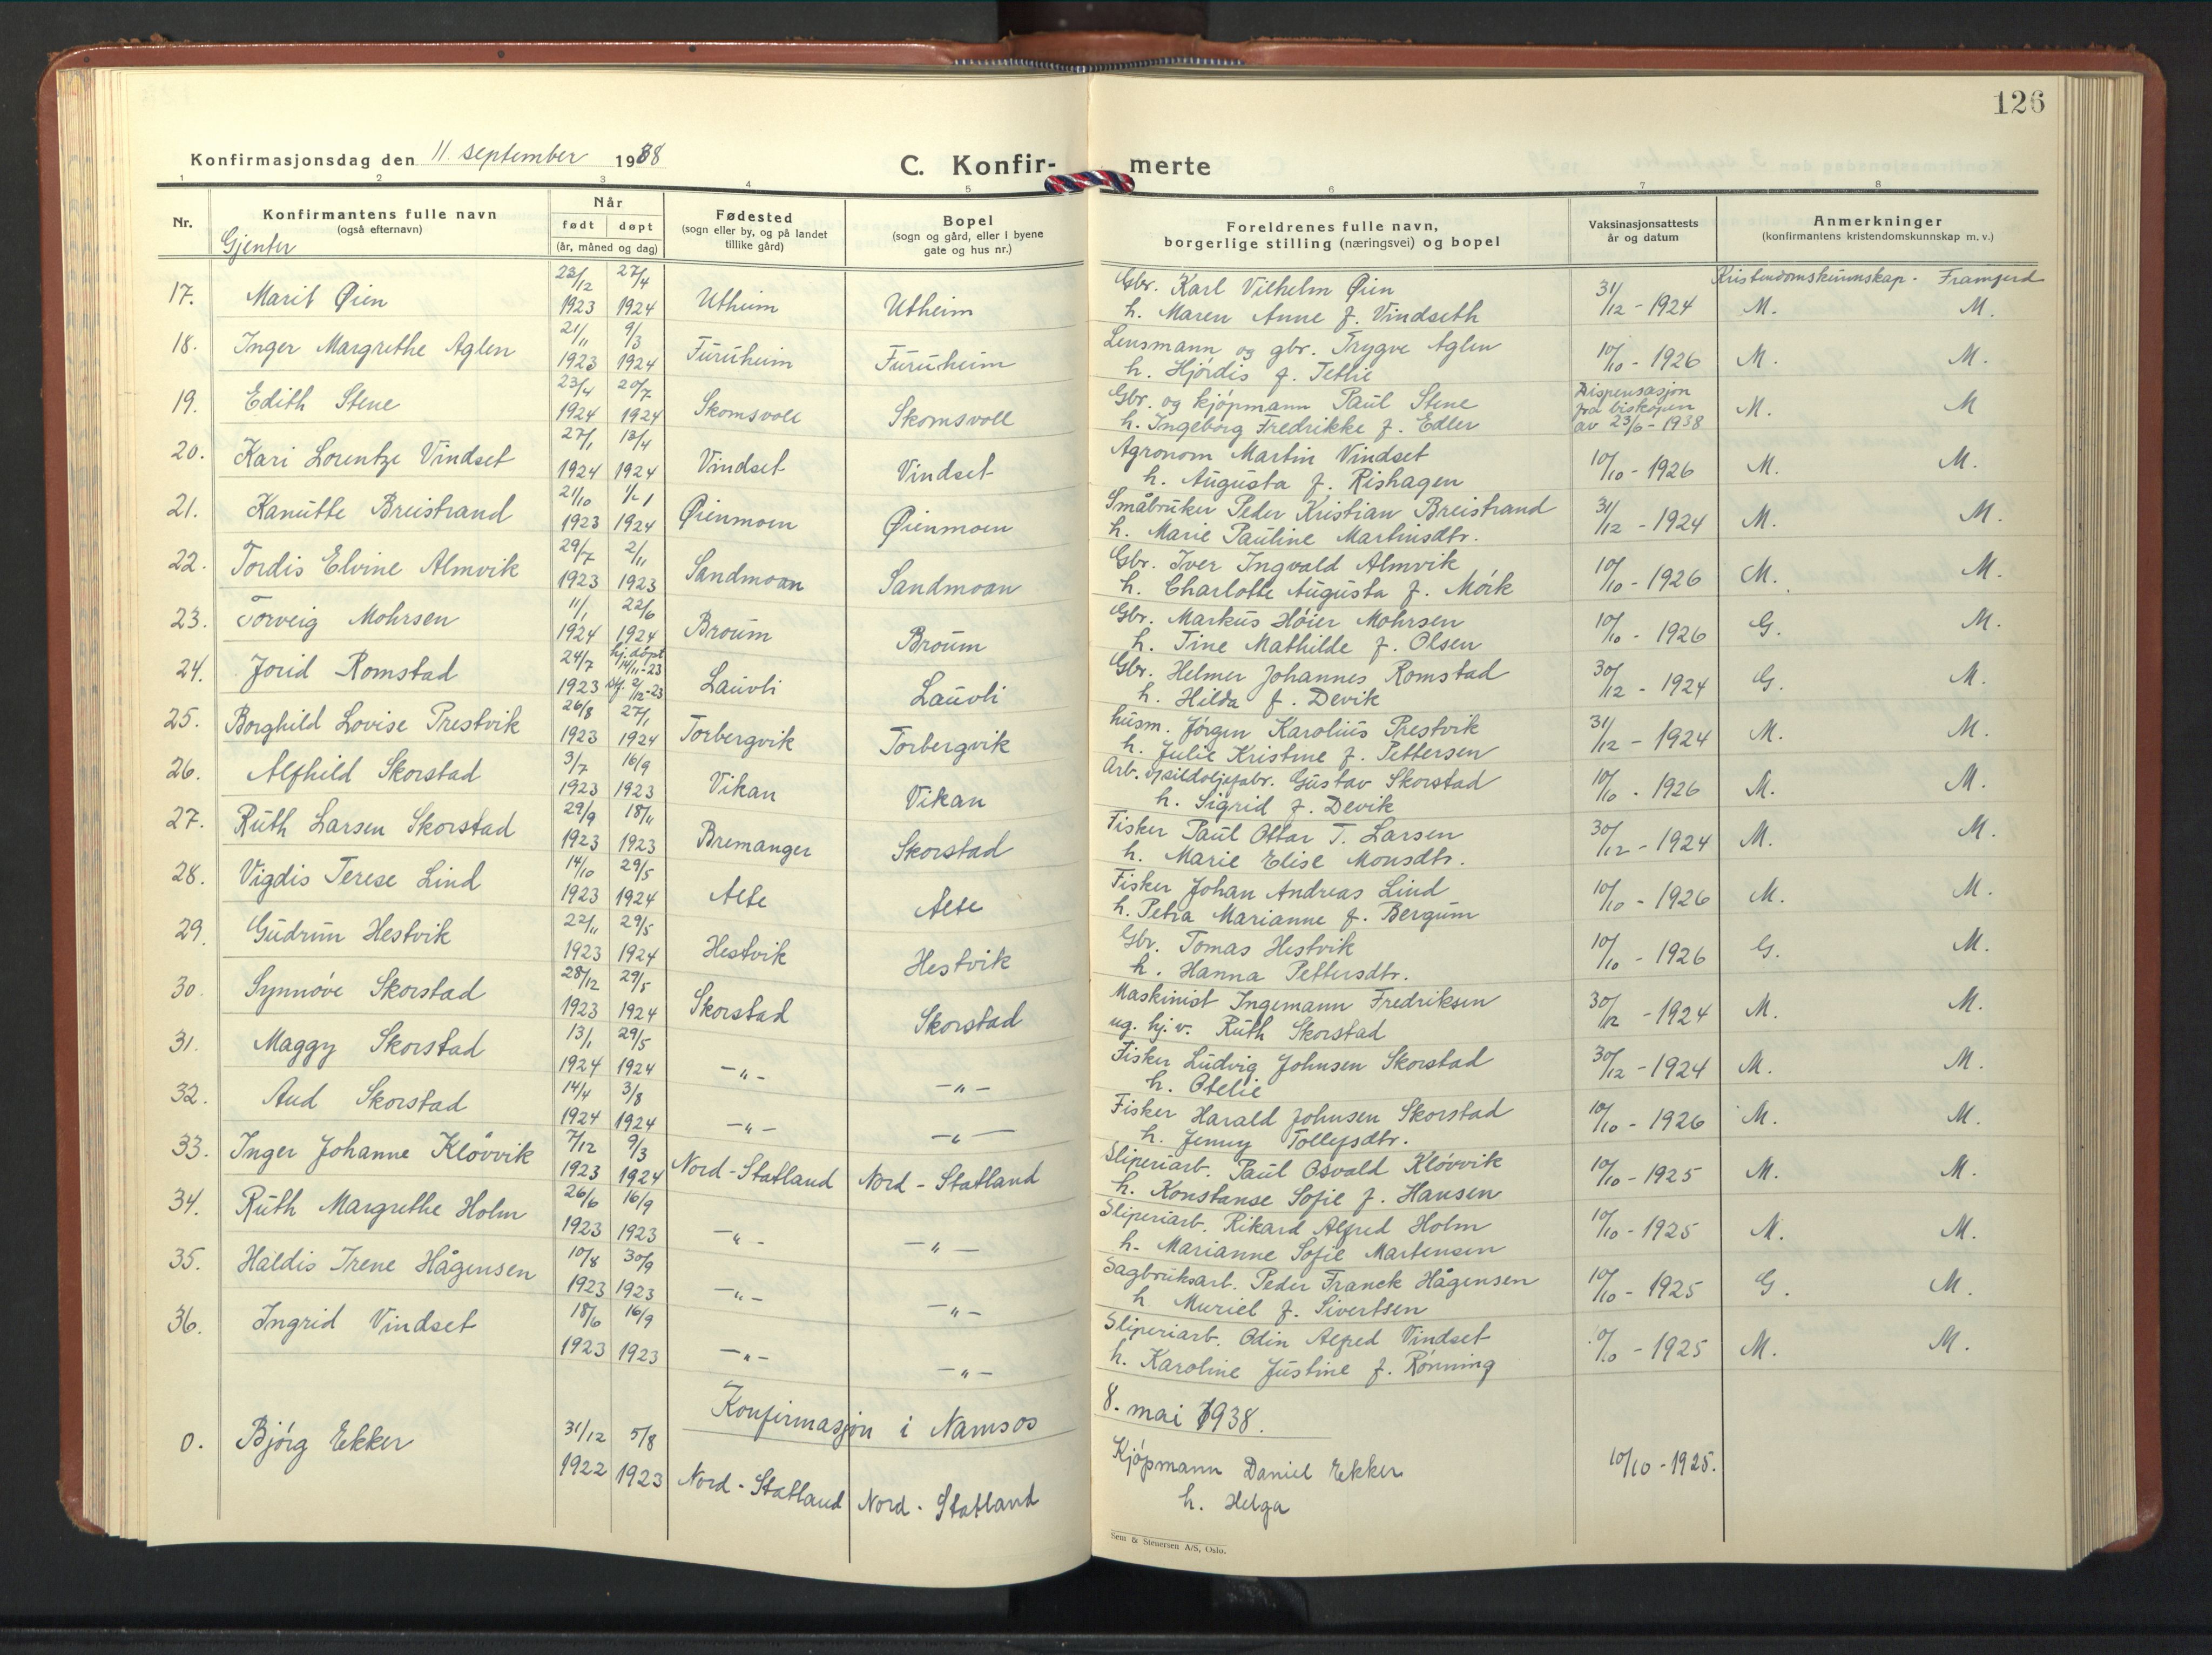 126
Konfirmasjonsdag den 11 september 1938
C. Konfir- merte
1 2 3 4 5 6 7 8
Nr.
Konfirmantens fulle navn
(også efternavn)
Gjenter
Når
født døpt
(år, måned og dag)
Fødested
(sogn eller by, og på landet
tillike gård)
Bopel
(sogn og gård, eller i byene
gate og hus nr.)
Foreldrenes fulle navn,
borgerlige stilling (næringsvei) og bopel
Vaksinasjonsattests
år og datum
Anmerkninger
(konfirmantens kristendomskunnskap m. v.)
Kristendomskunnskap. Framferd
17. Marit Øien 23/12 1923 27/4 1924 Utheim Utheim Gbr. Karl Vilhelm Øien
h. Maren Anne f. Vindseth 31/12 - 1924 M. M.
18. Inger Margrethe Aglen 21/11 1923 9/3 1924 Furuheim Furuheim Lensmann og gbr. Trygve Aglen
h. Hjördis f. Tetlie 10/10 - 1926 M. M.
19. Edith Stene 23/4 1924 20/7 1924 Skomsvoll Skomsvoll Gbr. og kjöpmann Paul Stene
h. Ingeborg Fredrikke f. Edler Dispensasjon
fra biskopen
av 23/6 - 1938 M. M
20. Kari Lorentze Vindset 27/1 1924 13/4 1924 Vindset Vindset Agronom Martin Vindset
h. Augusta f. Rishagen 10/10 - 1926 M. M.
21. Kanutte Breistrand 21/10 1923 1/1 1924 Øienmoen Øienmoen Småbruker Peder Kristian Breistrand
h. Marie Pauline Martinsdtr. 31/12 - 1924 M. M.
22. Tordis Elvine Almvik 29/7 1923 2/11 1923 Sandmoan Sandmoan Gbr. Iver Ingvald Almvik
h. Charlotte Augusta f. Mörk 10/10 - 1926 M. M.
23. Torveig Mohrsen 11/1 1924 22/6 1924 Broum Broum Gbr. Markus Höier Mohrsen
h. Tine Mathilde f. Olsen 10/10 - 1926 G. M.
24. Jorid Romstad 24/7 1923 hj. döpt 14/11-23 stf. 2/12-23 Lauvli Lauvli Gbr. Helmer Johannes Romstad
h. Hilda f. Devik 30/12 - 1924 G. M.
25. Borghild Lovise Prestvik 26/8 1923 27/1 1924 Torbergvik Torbergvik husm. Jörgen Karolius Prestvik
h. Julie Kristine f. Pettersen 31/12 - 1924 M. M.
26. Alfhild Skorstad 3/7 1923 16/9 1923 Vikan Vikan Arb. v/sildoljefabr. Gustav Skorstad
h. Sigrid f. Devik 10/10 - 1926 M. M.
27. Ruth Larsen Skorstad 29/9 1923 18/11 1923 Bremanger Skorstad Fisker Paul Ottar T. Larsen
h. Marie Elise Monsdtr. 30/12 - 1924 M. M.
28. Vigdis Terese Lind 14/10 1923 29/5 1924 Alte Alte Fisker Johan Andreas Lind
h. Petra Marianne f. Bergum 10/10 - 1926 M. M.
29. Gudrun Hestvik 22/11 1923 29/5 1924 Hestvik Hestvik Gbr. Tomas Hestvik
h. Hanna Pettersdtr. 10/10 - 1926 G. M.
30. Synnöve Skorstad 28/12 1923 29/5 1924 Skorstad Skorstad Maskinist Ingemann Fredriksen
ug. hj.v. Ruth Skorstad 30/12 - 1924 M. M.
31. Maggy Skorstad 13/1 1924 29/5 1924 -"- -"- Fisker Ludvig Johnsen Skorstad
h. Otelie 30/12 - 1924 M. M.
32. Aud Skorstad 14/4 1924 3/8 1924 -"- -"- Fisker Harald Johnsen Skorstad
h. Jenny Tollefsdtr. 10/10 - 1926 M. M.
33. Inger Johanne Klövvik 7/12 1923 9/3 1924 Nord-Statland Nord-Statland Sliperiarb. Paul Osvald Klövvik
h. Konstanse Sofie f. Hansen 10/10 - 1925 M. M.
34. Ruth Margrethe Holm 26/6 1923 16/9 1923 -"- -"- Sliperiarb. Rikard Alfred Holm
h. Marianne Sofie Martensen 10/10 - 1925 M. M.
35. Haldis Irene Hågensen 10/8 1923 30/9 1923 -"- -"- Sagbruksarb. Peder Franck Hågensen
h Muriel f. Sivertsen 10/10 - 1925 G. M.
36. Ingrid Vindset 18/6 1923 16/9 1923 -"- -"- Sliperiarb. Odin Alfred Vindset
h. Karoline Justine f. Rönning 10/10 - 1925 M. M.
Konfirmasjon i Namsos 8. mai 1938.
0. Bjórg Ekker 31/12 1922 5/8 1923 Nord-Statland Nord-Statland Kjöpmann Daniel Ekker
h. Helga 10/10 - 1925.
Sem & Stenersen A/S, Oslo.